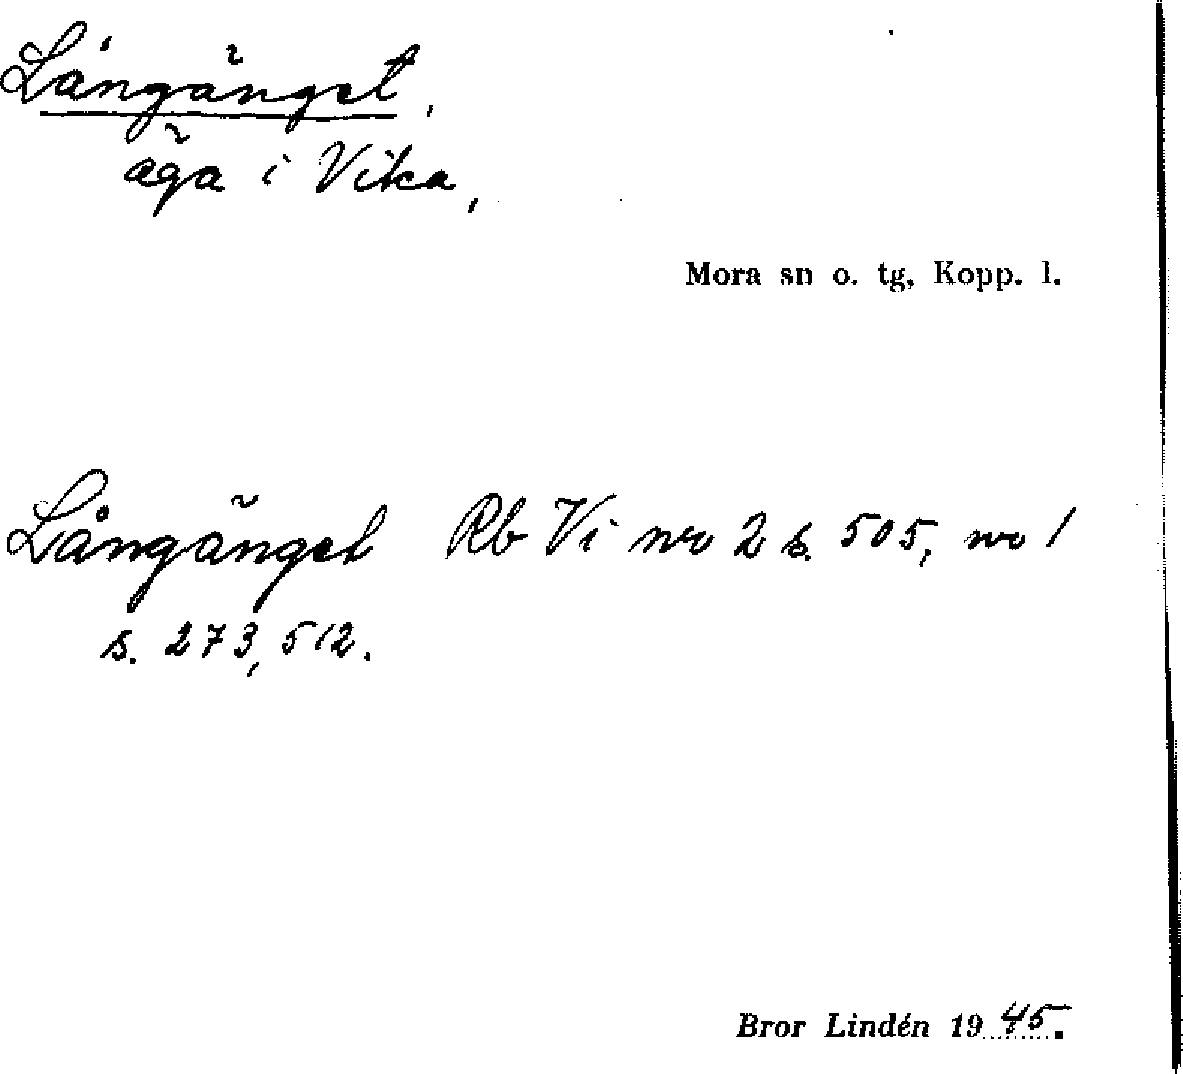 Långänget,
äga i Vika,
Mora sn o. tg, Kopp. l.
Långänget Rb Vi nro 2 s. 505, nro 1
s. 273, 512.
Bror Lindén 1945.